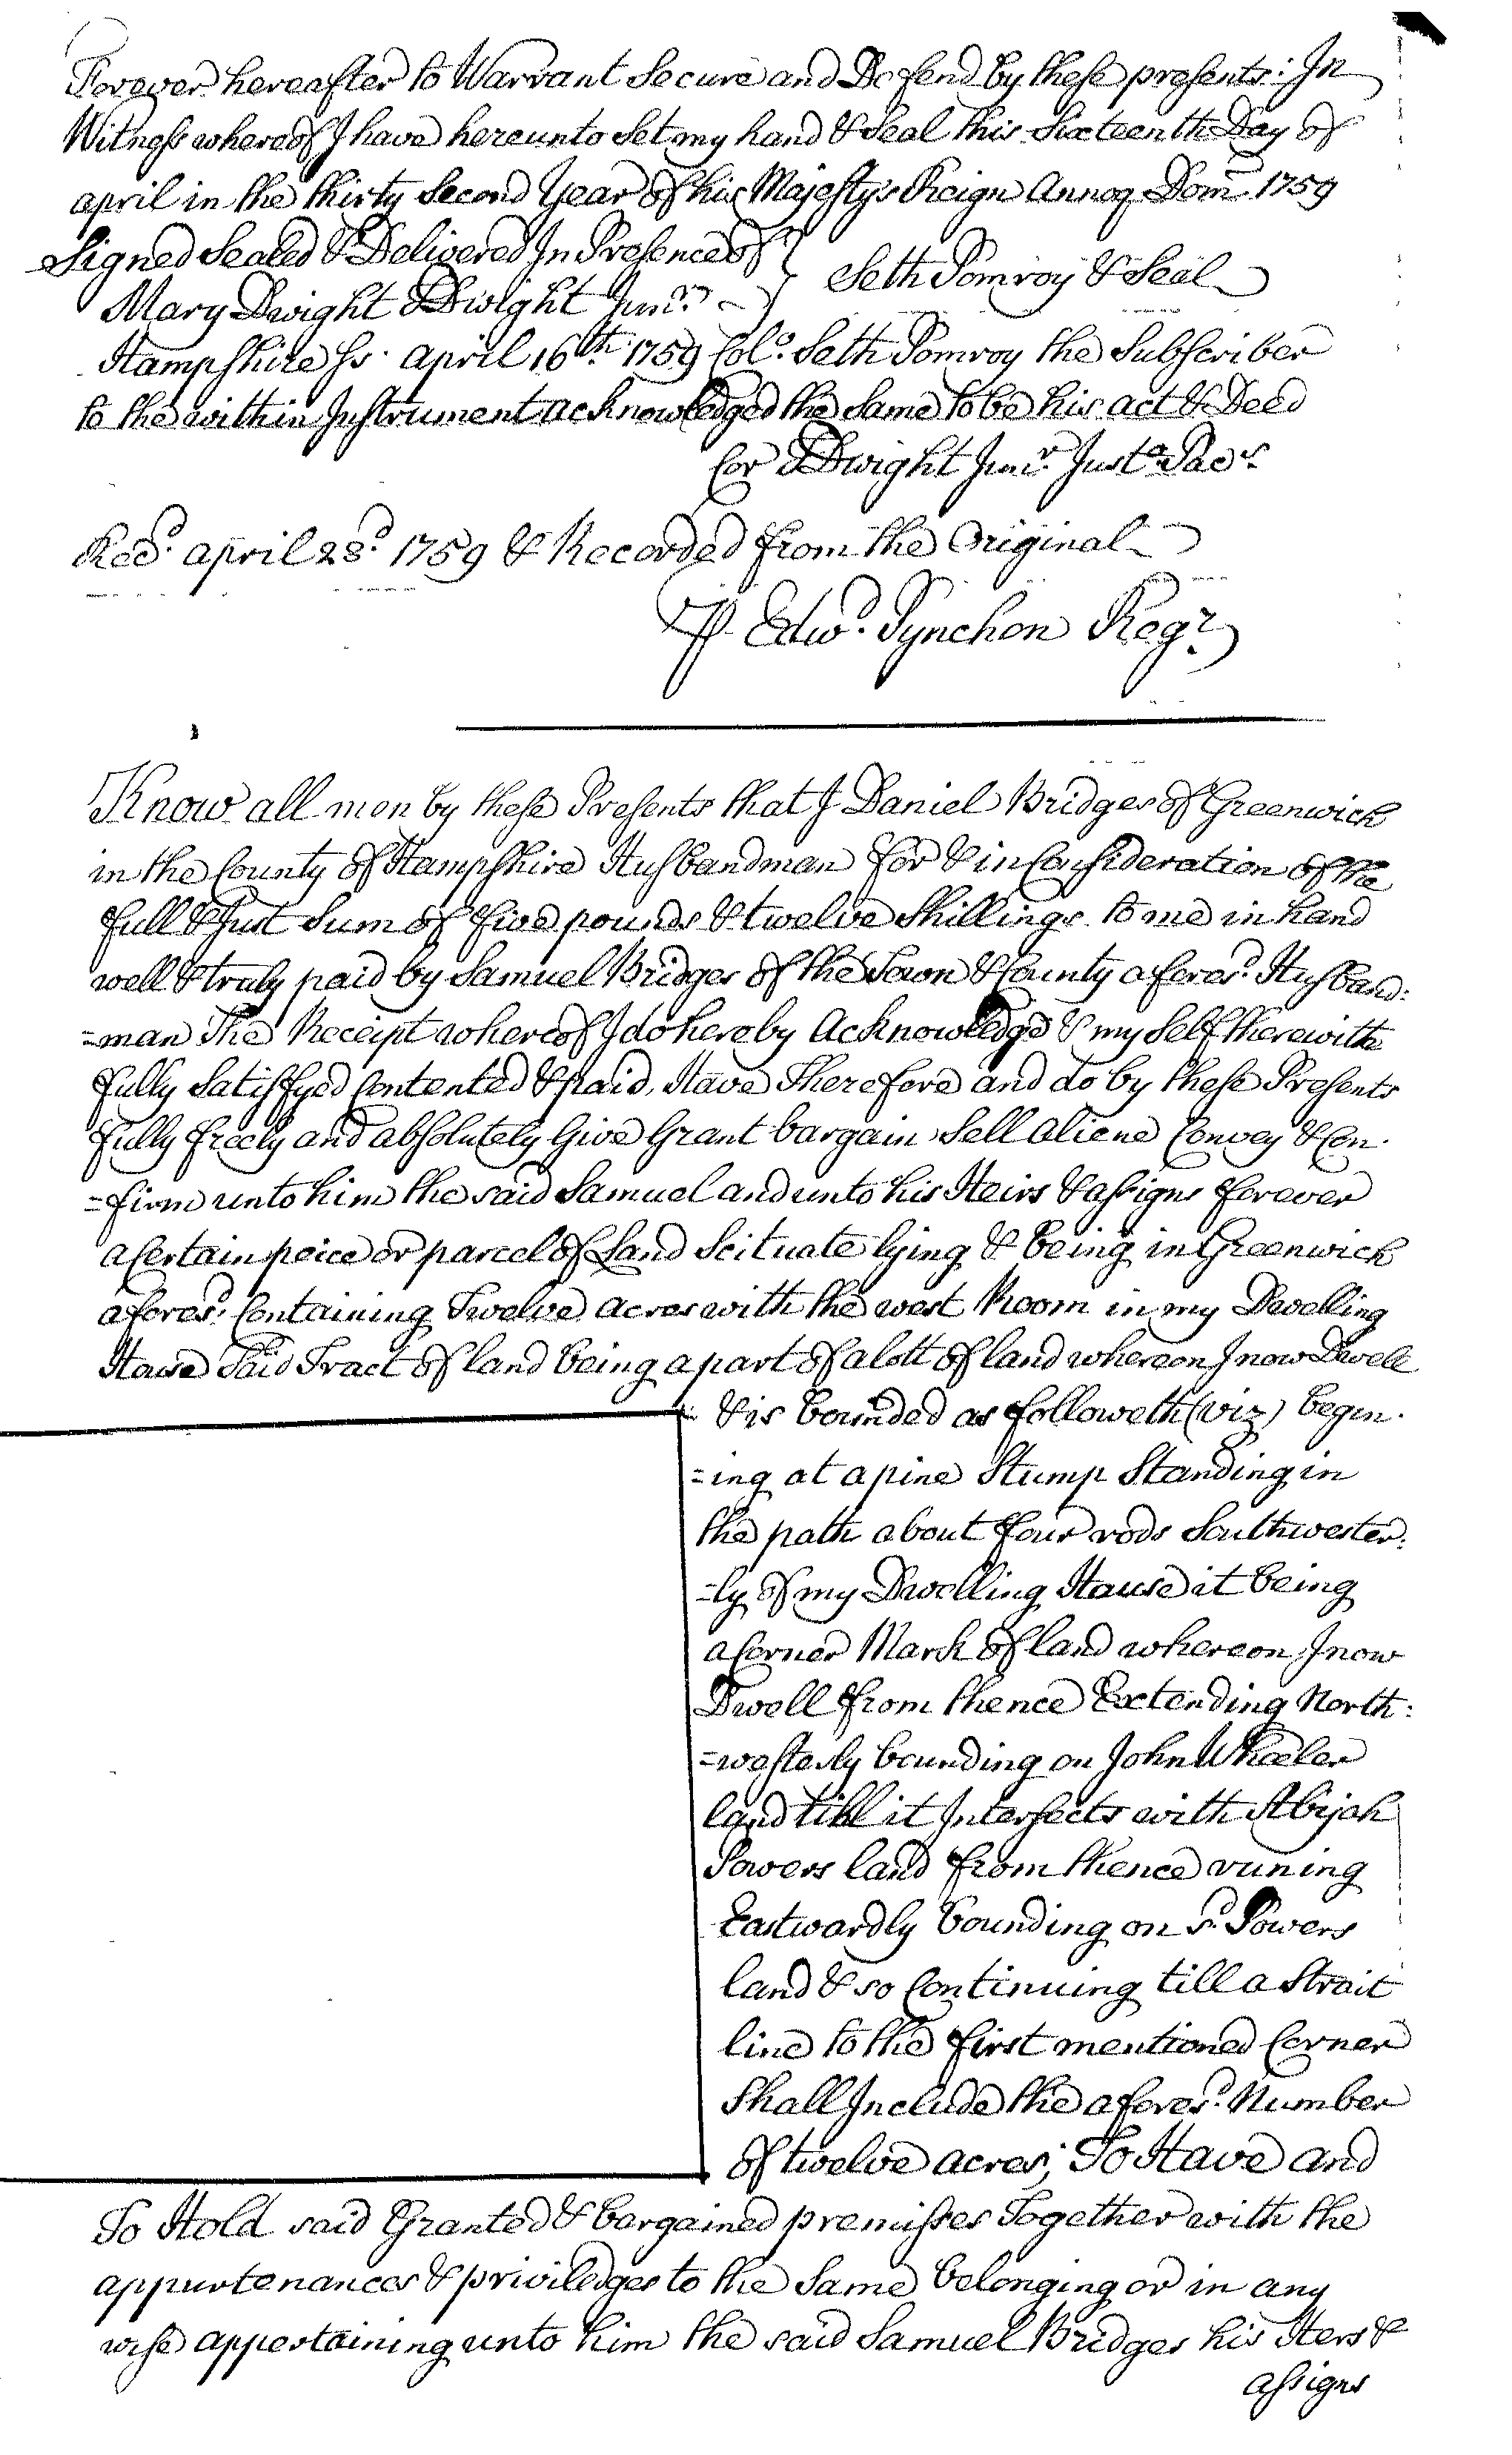 Forever hereafter to Warrant Secure and Defend by these presents: In
Witness whereof I have hereunto Set my hand & Seal this Sixteenth Day of
april in the thirty Second Year of his Majesty's Reign Annoq Dom. 1759
Signed Sealed & Delivered In Presence of }
Seth Pomroy & Seal
Mary Dwight Dwight Junr.
Hampshire ss. april 16th. 1759 Colo. Seth Pomroy the Subscriber
to the within Instrument acknowledged the Same to be his act & Deed
Cor Dwight Junr. Justa. Pacs.
Recd. april 23d. 1759 & Recorded from the Original
P Edwd. Pynchon Regr.
Know all men by these Presents that I Daniel Bridges of Greenwich
in the County of Hampshire Husbandman for & in Consideration of the
full & Just Sum of five pounds & twelve Shillings to me in hand
well & truly paid by Samuel Bridges of the Town & County aforesd. Husband:
=man The Receipt whereof I do hereby Acknowledge & my Self therewith
fully Satisfyed Contented & paid, Have Therefore and do by these Presents
fully freely and absolutely Give Grant bargain Sell aliene Convey & Con.
=firm unto him the said Samuel and unto his Heirs & assigns forever
a Certain peice or parcel of Land Scituate lying & being in Greenwich
aforesd. Containing Twelve acres with the west Room in my Dwelling
House Said Tract of land being a part of a lott of land whereon I now Dwell
& is bounded as followeth (viz) begin.
=ing at a pine Stump Standing in
the path about four rods Southwester:
=ly of my Dwelling House it being
a Corner Mark of land whereon I now
Dwell from thence Extending North:
=westerly bounding on John Wheeler
land till it Intersects with Abijah
Powers land from thence runing
Eastwardly bounding on sd. Powers
land & so Continuing till a Strait
line to the first mentioned Corner
Shall Include the aforesd. Number
of twelve acres; To Have and
To Hold said Granted & bargained premisses Together with the
appurtenances & priviledges to the Same belonging or in any
wise appertaining unto him the said Samuel Bridges his Hers &
assigns